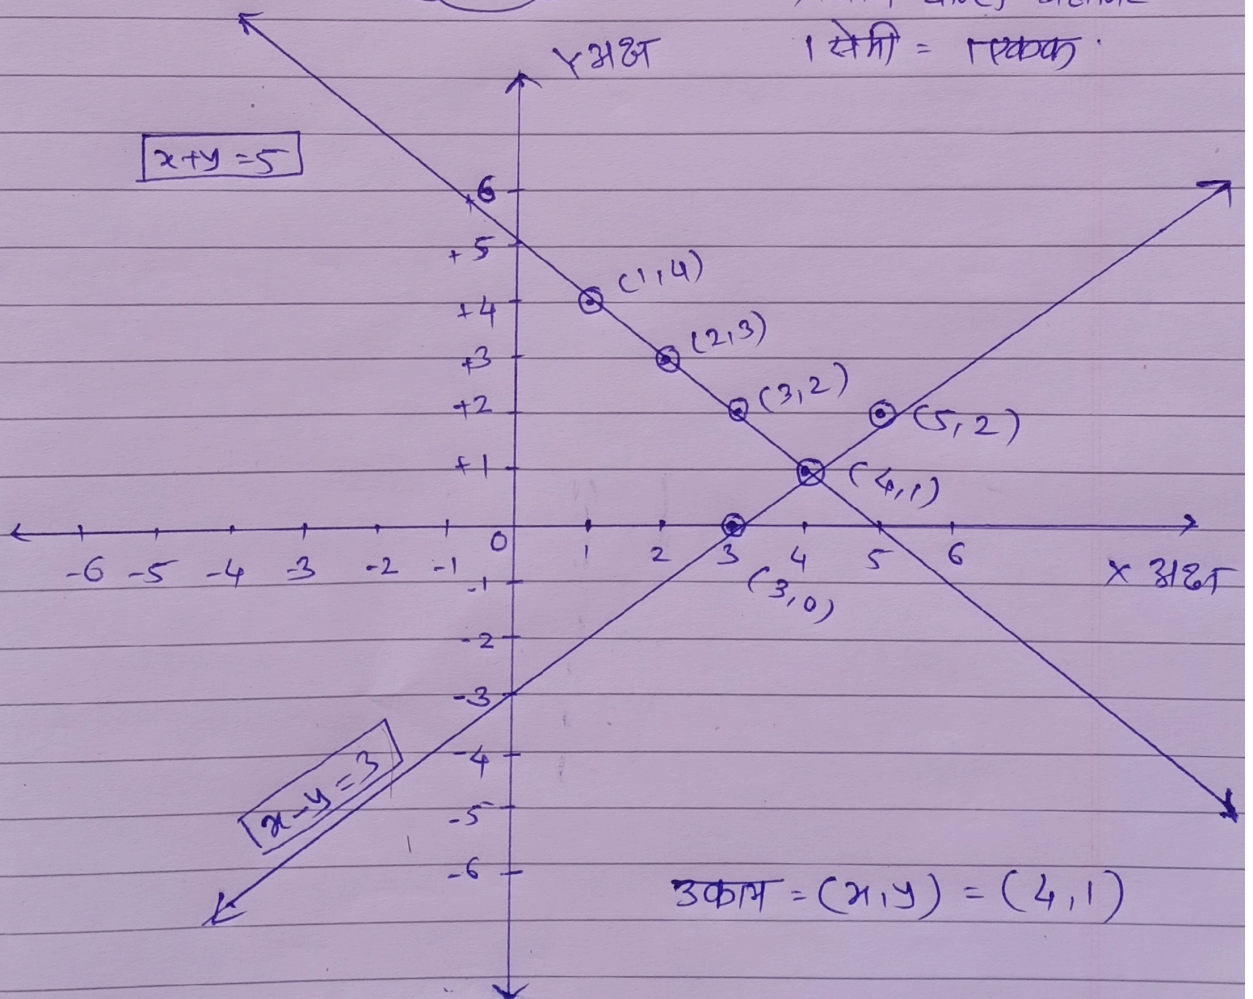 Y अक्ष
1 सेमी = 1 एकक.
x+y=5
6
+5
+4
+3
+2
+1
(1,4)
(2,3)
(3,2)
(5,2)
(4,1)
-6 -5 -4 -3 -2 -1 0 1 2 3 4 5 6
X अक्ष
(3,0)
-1
-2
-3
-4
-5
-6
x-y=3
उकल = (x,y) = (4,1)